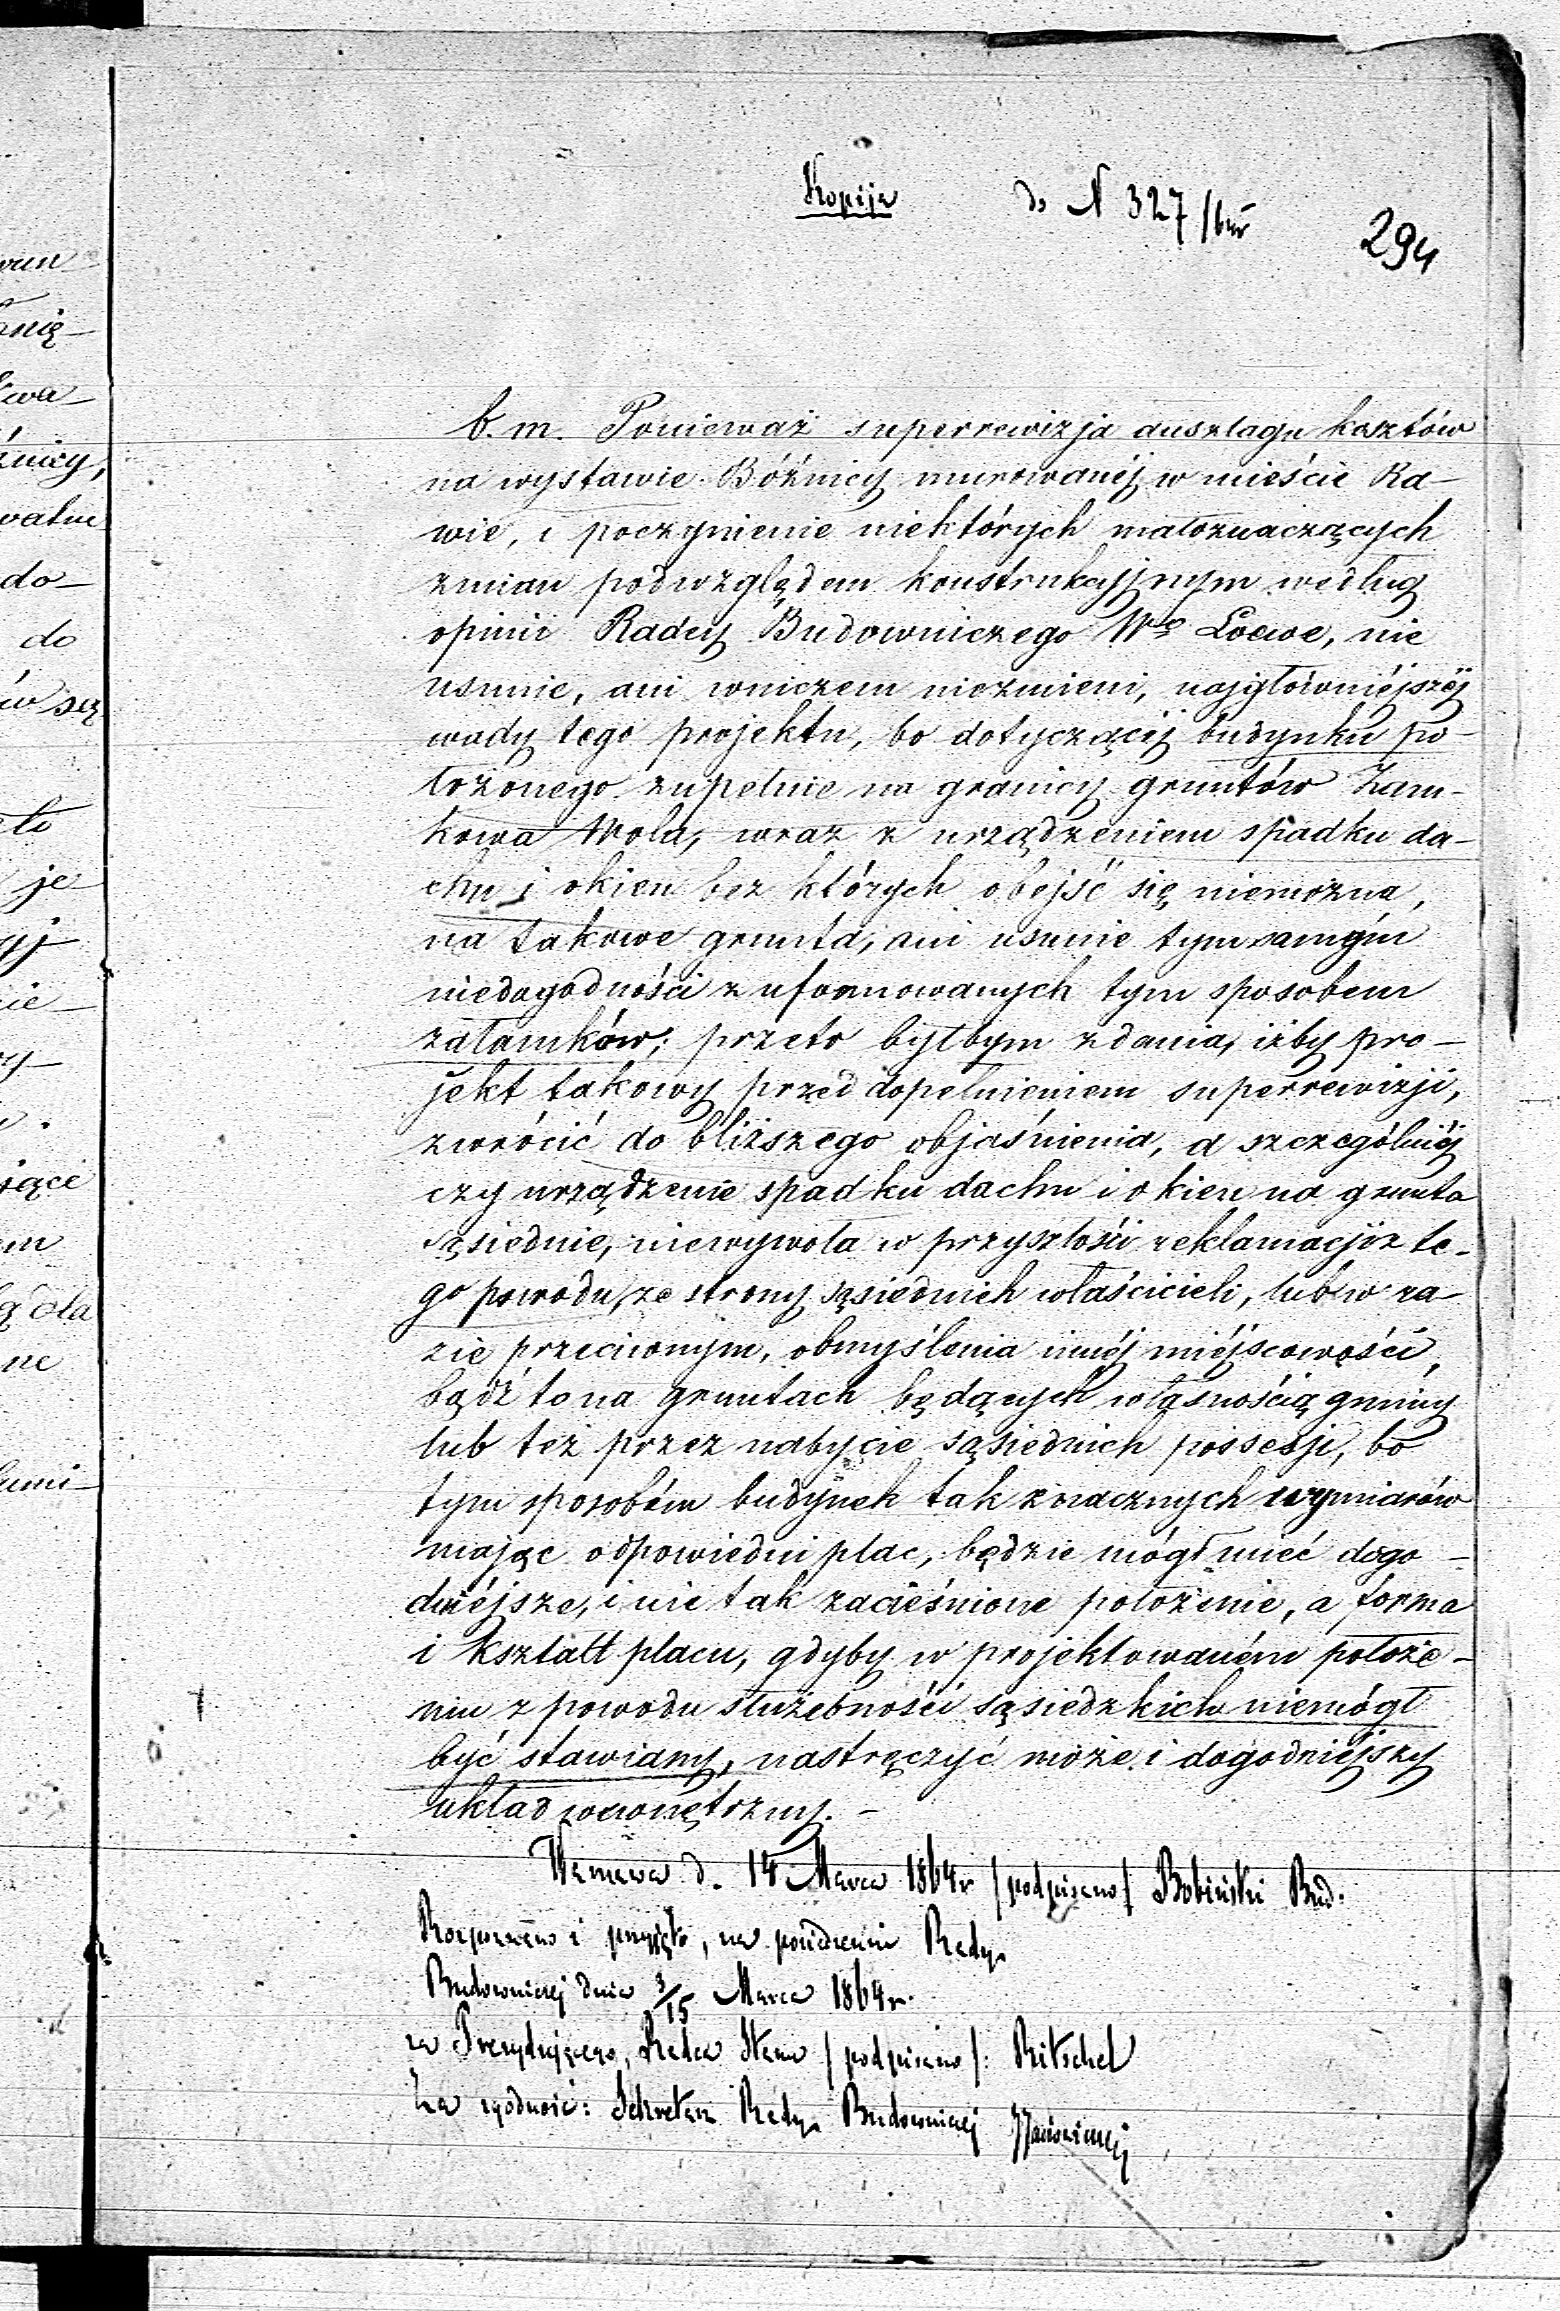 Kopija do N 327/bur
294
b. m. Ponieważ superrewizja anszlagu kosztów
na wystawie Bóźnicy murowanéj w mieście Ra-
wie, i poczynienie niektórych małoznaczących
zmian podwzględem konstrukcyjnym według
opinii Radcy Budowniczego Wgo Loewe, nie
usunie, ani wniczem niezmieni, najgłówniéjszéj
wady tego projektu, bo dotyczącéj budynku po-
łożonego zupełnie na granicy gruntów Zam-
kowa Wola, wraz z urządzeniem spadku da-
chu i okien bez których obejść się niemożna,
na takowe grunta, ani usunie tym samym
niedogodności z uformowanych tym sposobem
załamków; przeto byłbym zdania, iżby pro-
jekt takowy przed dopełnieniem superrewizji,
zwrócić do bliższego objaśnienia, a szczególniéj
czy urządzenie spadku dachu i okien na grunta
sąsiednie, niewywoła w przyszłości reklamacji z te-
go powodu, ze strony sąsiednich właścicieli, lub w ra-
zie przeciwnym, obmyślenia innéj miéjscowości,
bądź to na gruntach będących własnością gminy
lub też przez nabycie sąsiednich possesji, bo
tym sposobém budynek tak znacznych wymiarów
mając odpowiedni plac, będzie mógł mieć dogo-
dniéjsze, i nie tak zacieśnione położenie, a forma
i kształt placu, gdyby w projektowaném położe-
niu z powodu służebności sąsiedzkich niemógł
być stawiany, nastręczyć może i dogodniejszy
układ wewnętrzny. -
Warszawa d. 14 Marca 1864 r /podpisano/ Bobiński Bud.
Rozpoznano i przyjęto, na posiedzeniu Rady
Budowniczej dnia 3/15 Marca 1864 r.
za Prezydującego, Radca Stanu /podpisano/: Ritschel
Za zgodność: Sekretarz Rady Budowniczej